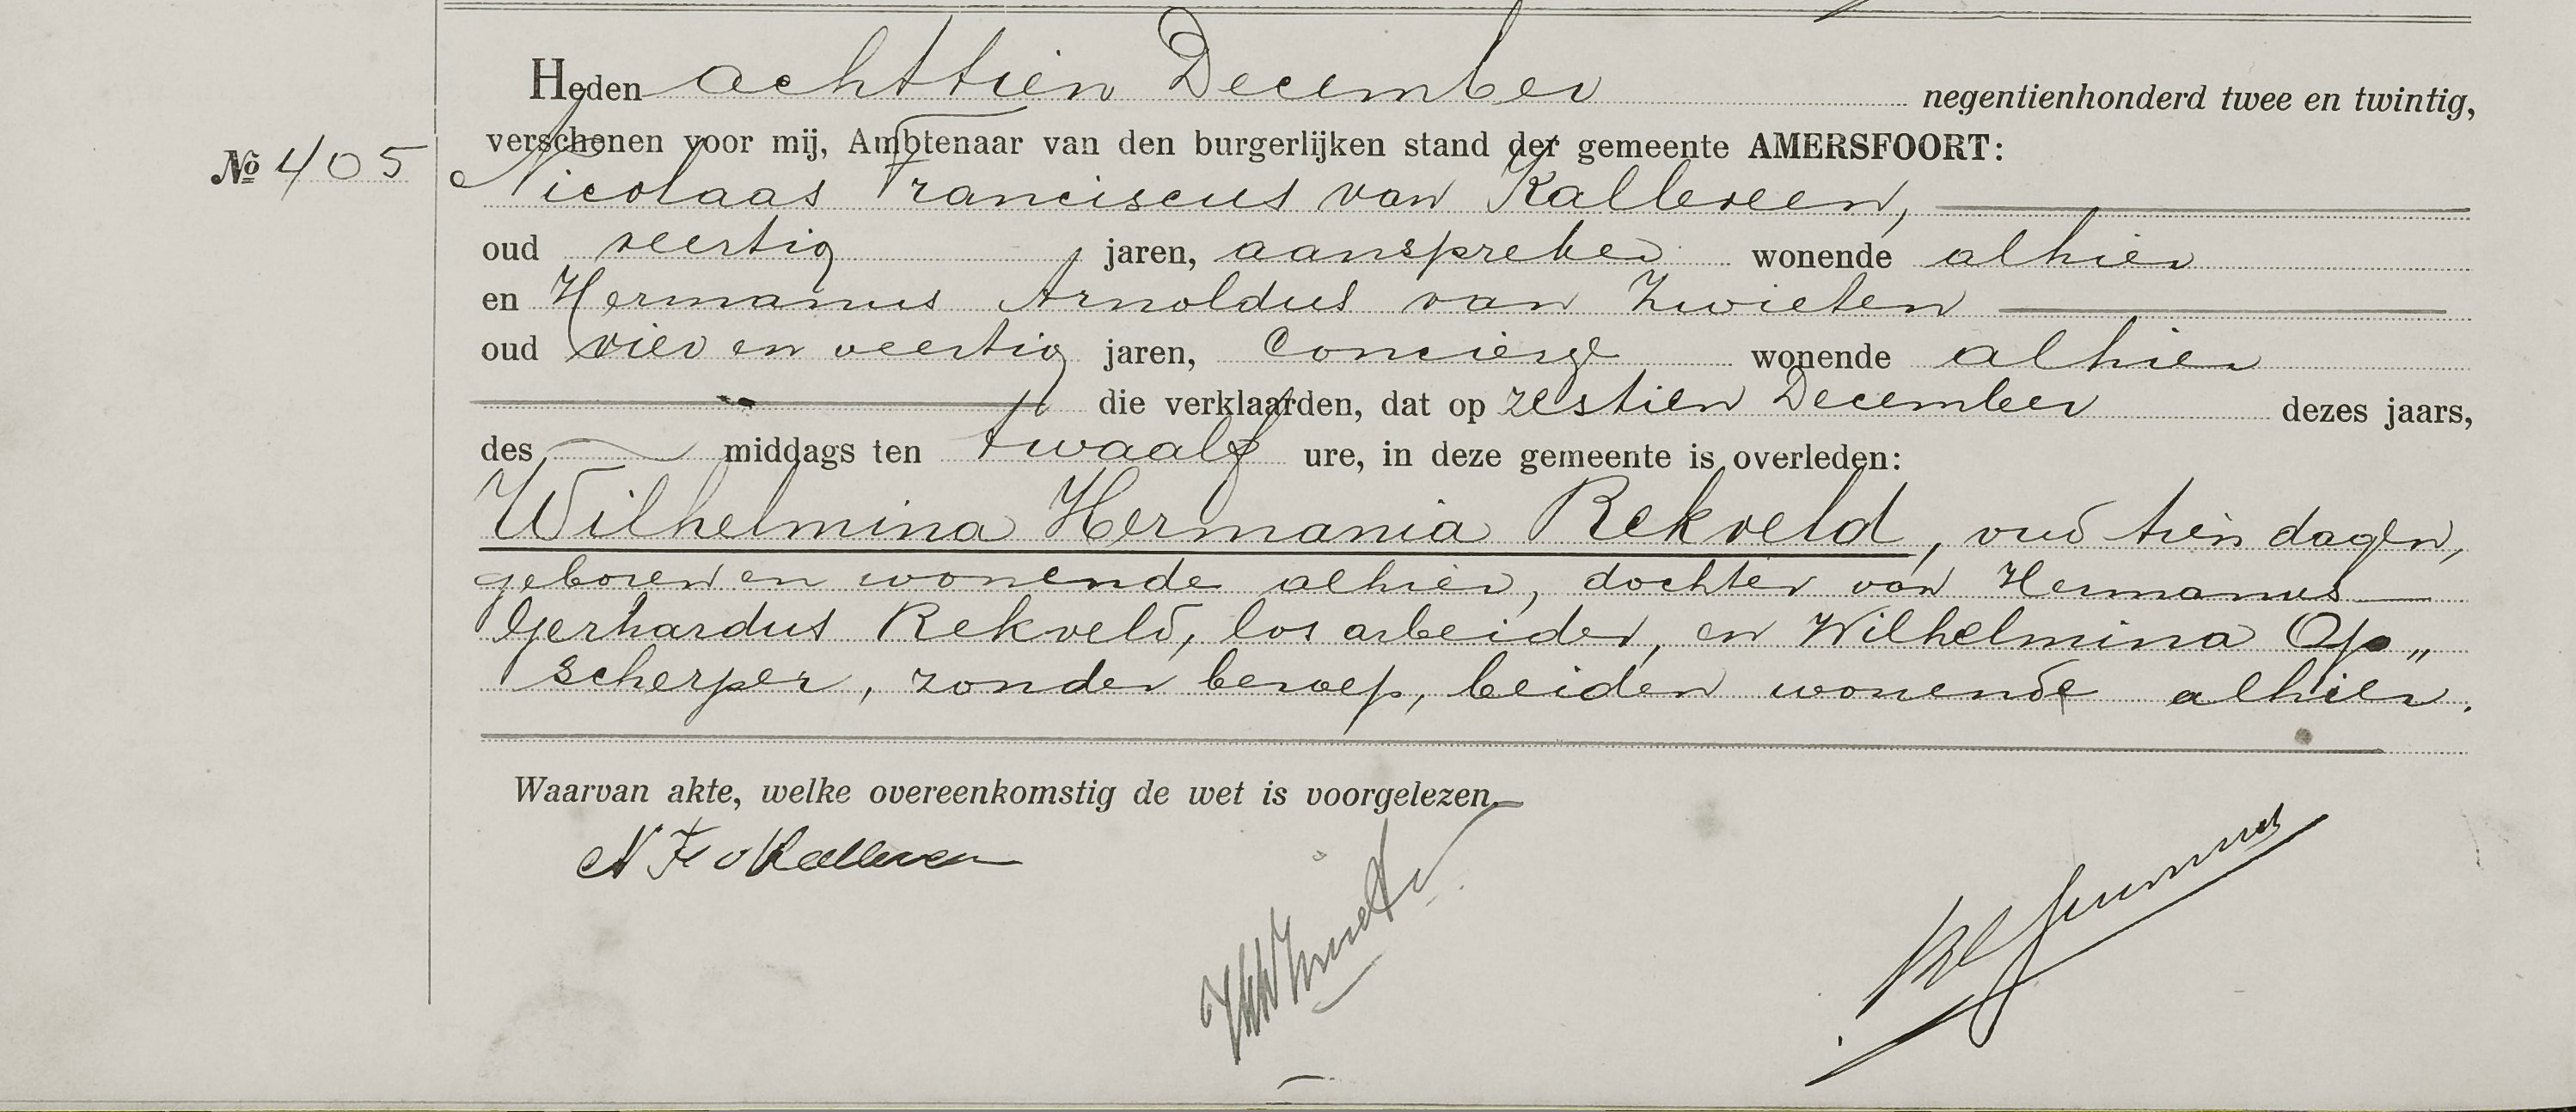 Heden achttien December negentienhonderd twee en twintig,
verschenen voor mij, Ambtenaar van den burgerlijken stand der gemeente AMERSFOORT:
No 405 Nicolaas Franciscus van Kalleveen,
oud veertig jaren, aanspreker wonende alhier
en Hermanus Arnoldus van Zwieten
oud vier en veertig jaren, Concierge wonende alhier
die verklaarden, dat op zestien December dezes jaars,
des middags ten twaalf ure, in deze gemeente is overleden:
Wilhelmina Hermania Rekveld, oud tien dagen,
geboren en wonende alhier, dochter van Hermanus
Gerhardus Rekveld, los arbeider, en Wilhelmina Op„
scherper, zonder beroep, beiden wonende alhier.
Waarvan akte, welke overeenkomstig de wet is voorgelezen.
N F v Kalleveen